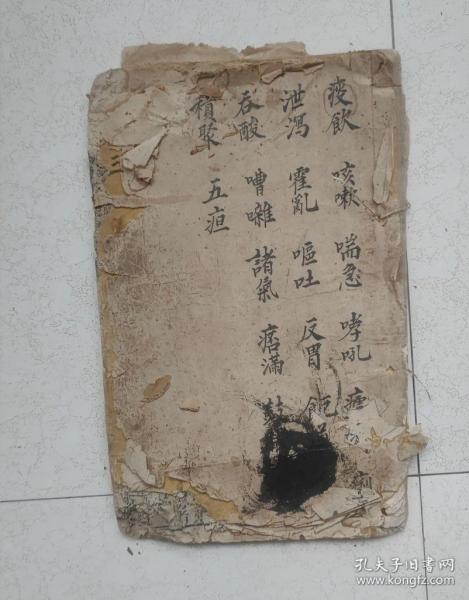 痰飲 咳嗽 喘急 哮吼 瘧
泄瀉 霍亂 嘔吐 反胃
吞酸 嘈雜 諸氣 痞滿 鼓
積聚 五疸
三
孔夫子旧书网
www.kongfz.com